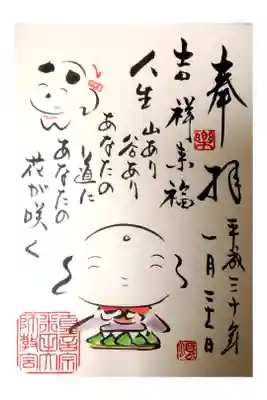 奉拝
平成三十年
一月三十一日
吉祥来福
人生
山あり
谷あり
あなたの
道に
あなたの
花が咲く